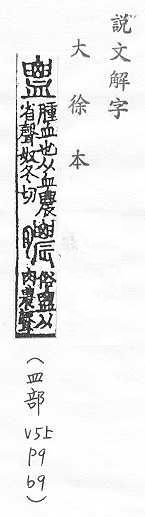 說文解字
大徐本
腫血也从血農
省聲奴冬切
俗𧗕从
肉農聲
（血部
v5上
p9
b9）